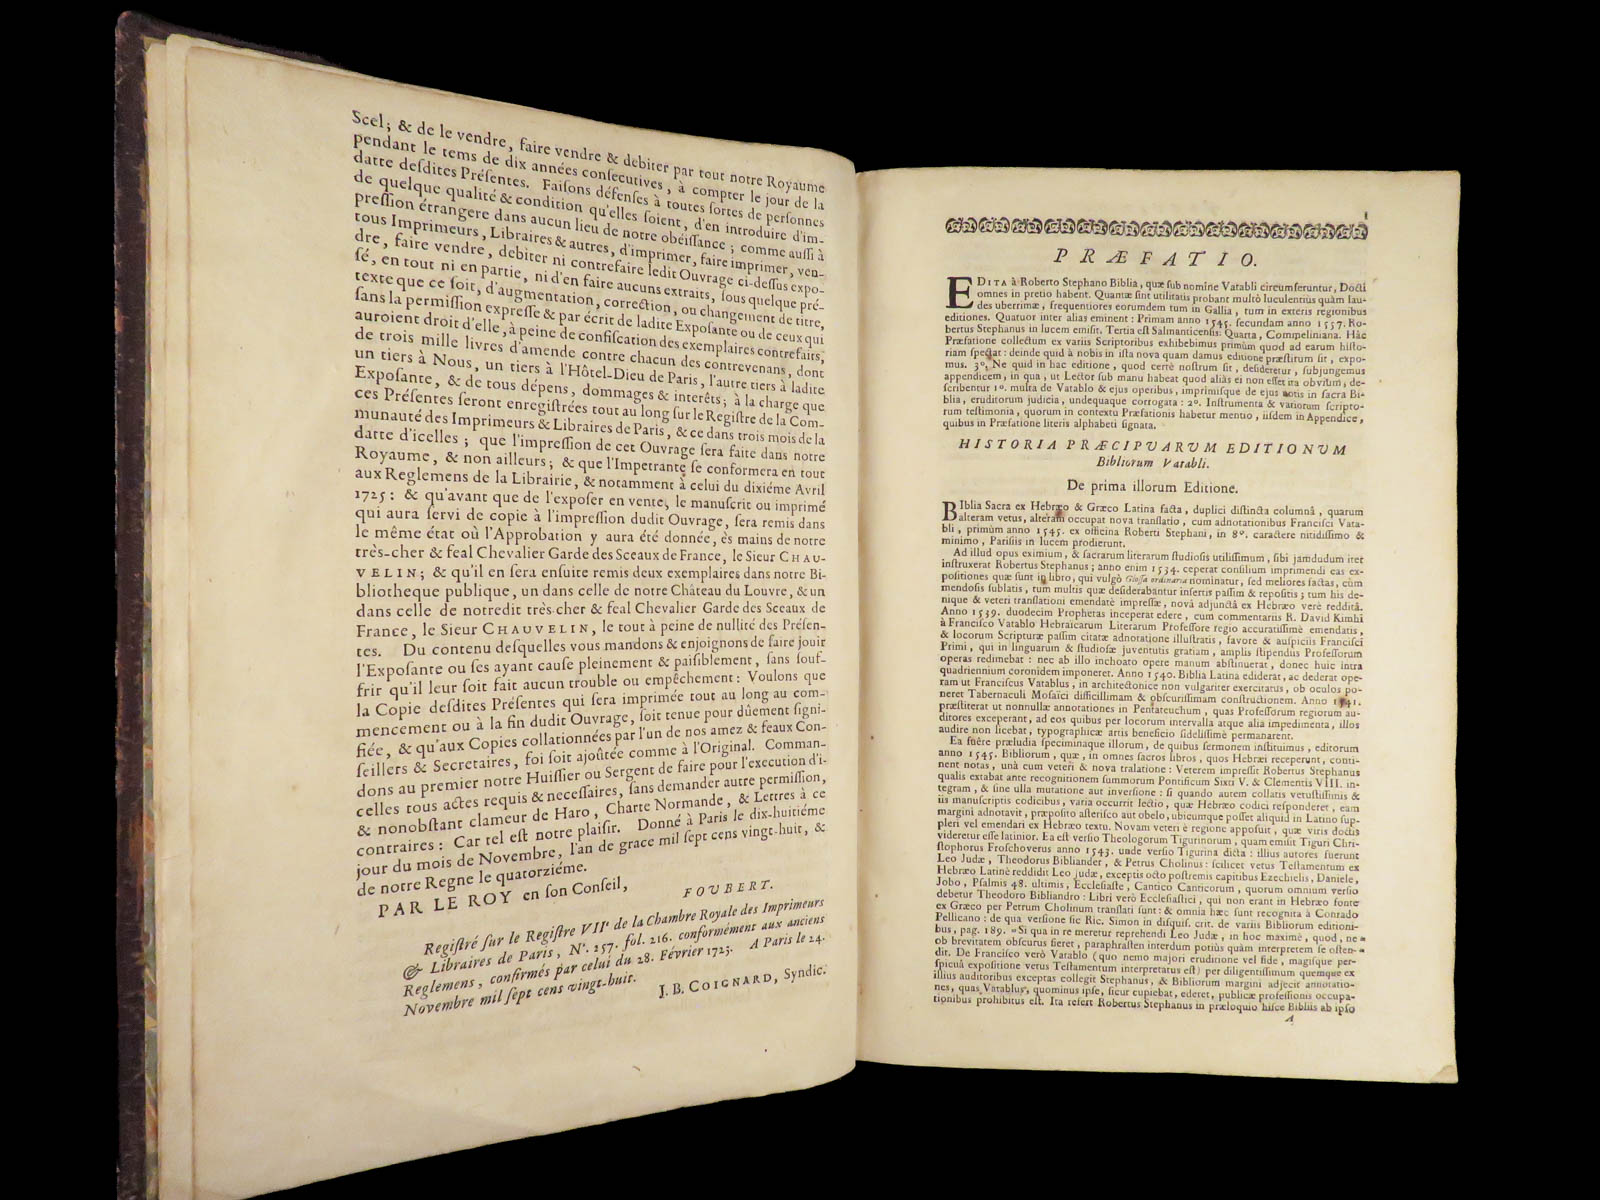 Scel; & de le vendre, faire vendre & debiter par tout notre Royaume
pendant le tems de dix années conſecutives, à compter le jour de la
datte deſdites Préſentes. Faiſons défenſes à toutes ſortes de perſonnes
de quelque qualité & condition qu'elles ſoient, d'en introduire d'im-
preſſion étrangere dans aucun lieu de notre obéiſſance; comme auſſi à
tous Imprimeurs, Libraires & autres, d'imprimer, faire imprimer, ven-
dre, faire vendre, debiter ni contrefaire ledit Ouvrage ci-deſſus expo-
ſé, en tout ni en partie, ni d'en faire aucuns extraits, ſous quelque pré-
texte que ce ſoit, d'augmentation, correction, ou changement de titre,
ſans la permiſſion expreſſe & par écrit de ladite Expoſante ou de ceux qui
auroient droit d'elle, à peine de confiſcation des exemplaires contrefaits,
de trois mille livres d'amende contre chacun des contrevenans, dont
un tiers à Nous, un tiers à l'Hôtel-Dieu de Paris, l'autre tiers à ladite
Expoſante, & de tous dépens, dommages & interêts; à la charge que
ces Préſentes ſeront enregiſtrées tout au long ſur le Regiſtre de la Com-
munauté des Imprimeurs & Libraires de Paris, & ce dans trois mois de la
datte d'icelles; que l'impreſſion de cet Ouvrage ſera faite dans notre
Royaume, & non ailleurs; & que l'Impetrante ſe conformera en tout
aux Reglemens de la Librairie, & notamment à celui du dixiéme Avril
1725: & qu'avant que de l'expoſer en vente, le manuſcrit ou imprimé
qui aura ſervi de copie à l'impreſſion dudit Ouvrage, ſera remis dans
le même état où l'Approbation y aura été donnée, ès mains de notre
très-cher & feal Chevalier Garde des Sceaux de France, le Sieur CHAU-
VELIN; & qu'il en ſera enſuite remis deux exemplaires dans notre Bi-
bliotheque publique, un dans celle de notre Château du Louvre, & un
dans celle de notredit très-cher & feal Chevalier Garde des Sceaux de
France, le Sieur CHAUVELIN, le tout à peine de nullité des Préſen-
tes. Du contenu deſquelles vous mandons & enjoignons de faire jouir
l'Expoſante ou ſes ayant cauſe pleinement & paiſiblement, ſans ſouf-
frir qu'il leur ſoit fait aucun trouble ou empêchement: Voulons que
la Copie deſdites Préſentes qui ſera imprimée tout au long au com-
mencement ou à la fin dudit Ouvrage, ſoit tenue pour dûement ſigni-
fiée, & qu'aux Copies collationnées par l'un de nos amez & feaux Con-
ſeillers & Secretaires, foi ſoit ajoûtée comme à l'Original. Comman-
dons au premier notre Huiſſier ou Sergent de faire pour l'execution d'i-
celles tous actes requis & neceſſaires, ſans demander autre permiſſion,
& nonobſtant clameur de Haro, Charte Normande, & Lettres à ce
contraires: Car tel eſt notre plaiſir. Donné à Paris le dix-huitiéme
jour du mois de Novembre, l'an de grace mil ſept cens vingt-huit, &
de notre Regne le quatorziéme.
PAR LE ROY en ſon Conſeil,
FOUBERT.
Regiſtré ſur le Regiſtre VIIe de la Chambre Royale des Imprimeurs
& Libraires de Paris, No. 257. fol. 216. conformément aux anciens
Reglemens, confirmés par celui du 28. Février 1723. A Paris le 24.
Novembre mil ſept cens vingt-huit.
J. B. COIGNARD, Syndic.
i
PRÆFATIO.
EDITA à Roberto Stephano Biblia, quæ ſub nomine Vatabli circumferuntur, Docti
omnes in pretio habent. Quantæ ſint utilitatis probant multò luculentiùs quàm lau-
des uberrimæ, frequentiores eorumdem tum in Gallia, tum in exteris regionibus
editiones. Quatuor inter alias eminent: Primam anno 1545. ſecundam anno 1557. Ro-
bertus Stephanus in lucem emiſit. Tertia eſt Salmanticenſis: Quarta, Compeliniana. Hâc
Præfatione collectum ex variis Scriptoribus exhibebimus primùm quod ad earum hiſto-
riam ſpectat: deinde quid à nobis in iſta nova quam damus editione præſtitum ſit, expo-
mus. 3o. Ne quid in hac editione, quod certè noſtrum ſit, deſideretur, ſubjungemus
appendicem, in qua, ut Lector ſub manu habeat quod aliàs ei non eſſet ita obvium, de-
ſcribentur 1o. multa de Vatablo & ejus operibus, imprimiſque de ejus notis in ſacra Bi-
blia, eruditorum judicia, undequaque corrogata: 2o. Inſtrumenta & variorum ſcripto-
rum teſtimonia, quorum in contextu Præfationis habetur mentio, iiſdem in Appendice,
quibus in Præfatione literis alphabeti ſignata.
HISTORIA PRÆCIPUARUM EDITIONUM
Bibliorum Vatabli.
De prima illorum Editione.
BIblia Sacra ex Hebræo & Græco Latina facta, duplici diſtincta columnâ, quarum
alteram vetus, alteram occupat nova tranſlatio, cum adnotationibus Franciſci Vata-
bli, primùm anno 1545. ex officina Roberti Stephani, in 8o. caractere nitidiſſimo &
minimo, Pariſiis in lucem prodierunt.
Ad illud opus eximium, & ſacrarum literarum ſtudioſis utiliſſimum, ſibi jamdudum iter
inſtruxerat Robertus Stephanus; anno enim 1534. ceperat conſilium imprimendi eas ex-
poſitiones quæ ſunt in libro, qui vulgò Gloſſa ordinaria nominatur, ſed meliores factas, cùm
mendoſis ſublatis, tum multis quæ deſiderabantur inſertis paſſim & repoſitis; tum his de-
nique & veteri tranſlationi emendatè impreſſæ, novâ adjunctâ ex Hebræo verè redditâ.
Anno 1539. duodecim Prophetas inceperat edere, cum commentariis R. David Kimhi
à Franciſco Vatablo Hebraïcarum Literarum Profeſſore regio accuratiſſimè emendatis,
& locorum Scripturæ paſſim citatæ adnotatione illuſtratis, favore & auſpiciis Franciſci
Primi, qui in linguarum & ſtudioſæ juventutis gratiam, amplis ſtipendus Profeſſorum
operas redimebat: nec ab illo inchoato opere manum abſtinuerat, donec huic intra
quadriennium coronidem imponeret. Anno 1540. Biblia Latina ediderat, ac dederat ope-
ram ut Franciſcus Vatablus, in architectonice non vulgariter exercitatus, ob oculos po-
neret Tabernaculi Moſaïci difficillimam & obſcuriſſimam conſtructionem. Anno 1541.
præſtiterat ut nonnullæ annotationes in Pentateuchum, quas Profeſſorum regiorum au-
ditores exceperant, ad eos quibus per locorum intervalla atque alia impedimenta, illos
audire non licebat, typographicæ artis beneficio fideliſſimè permanarent.
Ea fuêre præludia ſpeciminaque illorum, de quibus ſermonem inſtituimus, editorum
anno 1545. Bibliorum, quæ, in omnes ſacros libros, quos Hebræi receperunt, conti-
nent notas, unà cum veteri & nova tralatione: Veterem impreſſit Robertus Stephanus
qualis extabat ante recognitionem ſummorum Pontificum Sixti V. & Clementis VIII. in-
tegram, & ſine ulla mutatione aut inverſione: ſi quando autem collatis vetuſtiſſimis &
iis manuſcriptis codicibus, varia occurrit lectio, quæ Hebræo codici reſponderet, eam
margini adnotavit, præpoſito aſteriſco aut obelo, ubicumque poſſet aliquid in Latino ſup-
pleri vel emendari ex Hebræo textu. Novam veteri è regione appoſuit, quæ viris doctis
videretur eſſe latinior. Ea eſt verſio Theologorum Tigurinorum, quam emiſit Tiguri Chri-
ſtophorus Froſchoverus anno 1543. unde verſio Tigurina dicta: illius autores fuerunt
Leo Judæ, Theodorus Bibliander, & Petrus Cholinus: ſcilicet vetus Teſtamentum ex
Hebræo Latinè reddidit Leo Judæ, exceptis octo poſtremis capitibus Ezechielis, Daniele,
Jobo, Pſalmis 48. ultimis, Eccleſiaſte, Cantico Canticorum, quorum omnium verſio
debetur Theodoro Bibliandro: Libri verò Eccleſiaſtici, qui non erant in Hebræo fonte
ex Græco per Petrum Cholinum tranſlati ſunt: & omnia hæc ſunt recognita à Conrado
Pellicano: de qua verſione ſic Ric. Simon in diſquiſ. crit. de variis Bibliorum editioni-
bus, pag. 189. »Si qua in re meretur reprehendi Leo Judæ, in hoc maximè, quod, ne»
ob brevitatem obſcurus fieret, paraphraſten interdum potiùs quàm interpretem ſe oſten-»
dit. De Franciſco verò Vatablo (quo nemo majori eruditione vel fide, magiſque per-
ſpicuâ expoſitione vetus Teſtamentum interpretatus eſt) per diligentiſſimum quemque ex
illius auditoribus exceptas collegit Stephanus, & Bibliorum margini adjecit annotatio-
nes, quas Vatablus, quominus ipſe, ſicut cupiebat, ederet, publicæ profeſſionis occupa-
tionibus prohibitus eſt. Ita refert Robertus Stephanus in præloquio hiſce Bibliis ab ipſo
A